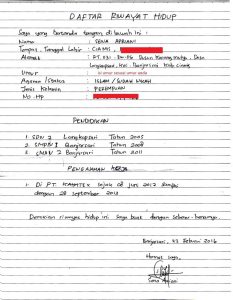 DAFTAR RIWAYAT HIDUP
Saya yang bertanda tangan di bawah ini :
Nama : SENA APRIANI
Tempat, Tanggal Lahir : CIAMIS,
Alamat : RT. 031 Dusun Desa
Langkapsari, Kec. Banjarsari Kab. Ciamis
Umur : isi umur sesuai umur anda
Agama / Status : ISLAM /
Jenis Kelamin : PEREMPUAN
No. HP :
PENDIDIKAN
1. SDN 2 Langkapsari Tahun 2005
2. SMPN 1 Banjarsari Tahun 2008
3. SMAN 2 Banjarsari Tahun 2011
PENGALAMAN KERJA
1. Di PT. KAHATEX sejak 08 Juni 2012 sampai
dengan 28 September 2013
Demikian riwayat hidup ini saya buat dengan sebenar-benarnya.
Banjarsari, 23 Februari 2016
Hormat saya,
Sena Apriani